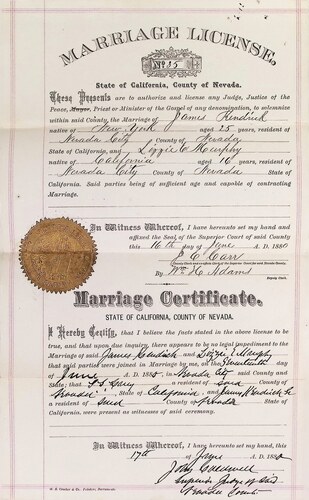 MARRIAGE LICENSE,
No 35
State of California, County of Nevada.
These Presents are to authorize and license any Judge, Justice of the
Peace, Mayor, Priest or Minister of the Gospel of any denomination, to solemnize
within said County, the Marriage of James Kendrick
native of New York aged 25 years, resident of
Nevada City County of Nevada
State of California, and Lizzie C Murphy
native of California aged 16 years, resident of
Nevada City County of Nevada State of
California. Said parties being of sufficient age and capable of contracting
Marriage.
In Witness Whereof, I have hereunto set my hand and
affixed the Seal of the Superior Court of said County
this 16th day of June A. D. 1880
E C Carr
By Wm H Adams
Deputy Clerk.
Marriage Certificate.
STATE OF CALIFORNIA, COUNTY OF NEVADA.
I Hereby Certify, that I believe the facts stated in the above license to be
true, and that upon due inquiry there appears to be no legal impediment to the
Marriage of said James Kendrick and Lizzie C Murphy
that said parties were joined in Marriage by me, on the Seventeenth day
of June A.D. 1880 in Nevada City said County and
state; that a resident of said County of
Nevada State of California and James Kendrick Sr
a resident of said County of Nevada State of
California, were present as witnesses of said ceremony.
In Witness Whereof, I have hereunto set my hand, this
17th day of June A. D. 1880
John Caldwell
Superior Judge of said
Nevada County